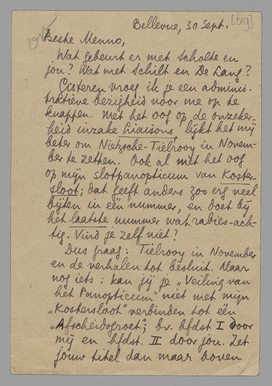 Bellevue, 30 Sept.
Beste Menno,
Wat gebeurt er met Scholte en
jou? Wat met Schilt en De Lang?
Gisteren vroeg ik je een adminis-
tratieve bezigheid voor me op te
knappen. Met het oog op de onzeker-
heid inzake liaisons, lijkt het mij
beter om Nietzsche-Tielrooy in Novem-
ber te zetten. Ook al met het oog
op mijn slotpanopticum van Koster-
sloot; dat geeft anders zoo erg veel
bijten in één nummer, en doet bij
het laatste nummer wat rabies-ach-
tig. Vind je zelf niet?
Dus graag: Tielrooy in November
en de verhalen tot besluit. Maar
nog iets: kan jij je „Veiling van
het Panopticum" niet met mijn
„Kostersloot" verbinden tot één
„Afscheidsgroet"; bv. hfdst I door
mij en hfdst. II door jou. Zet
jouw titel dan maar boven